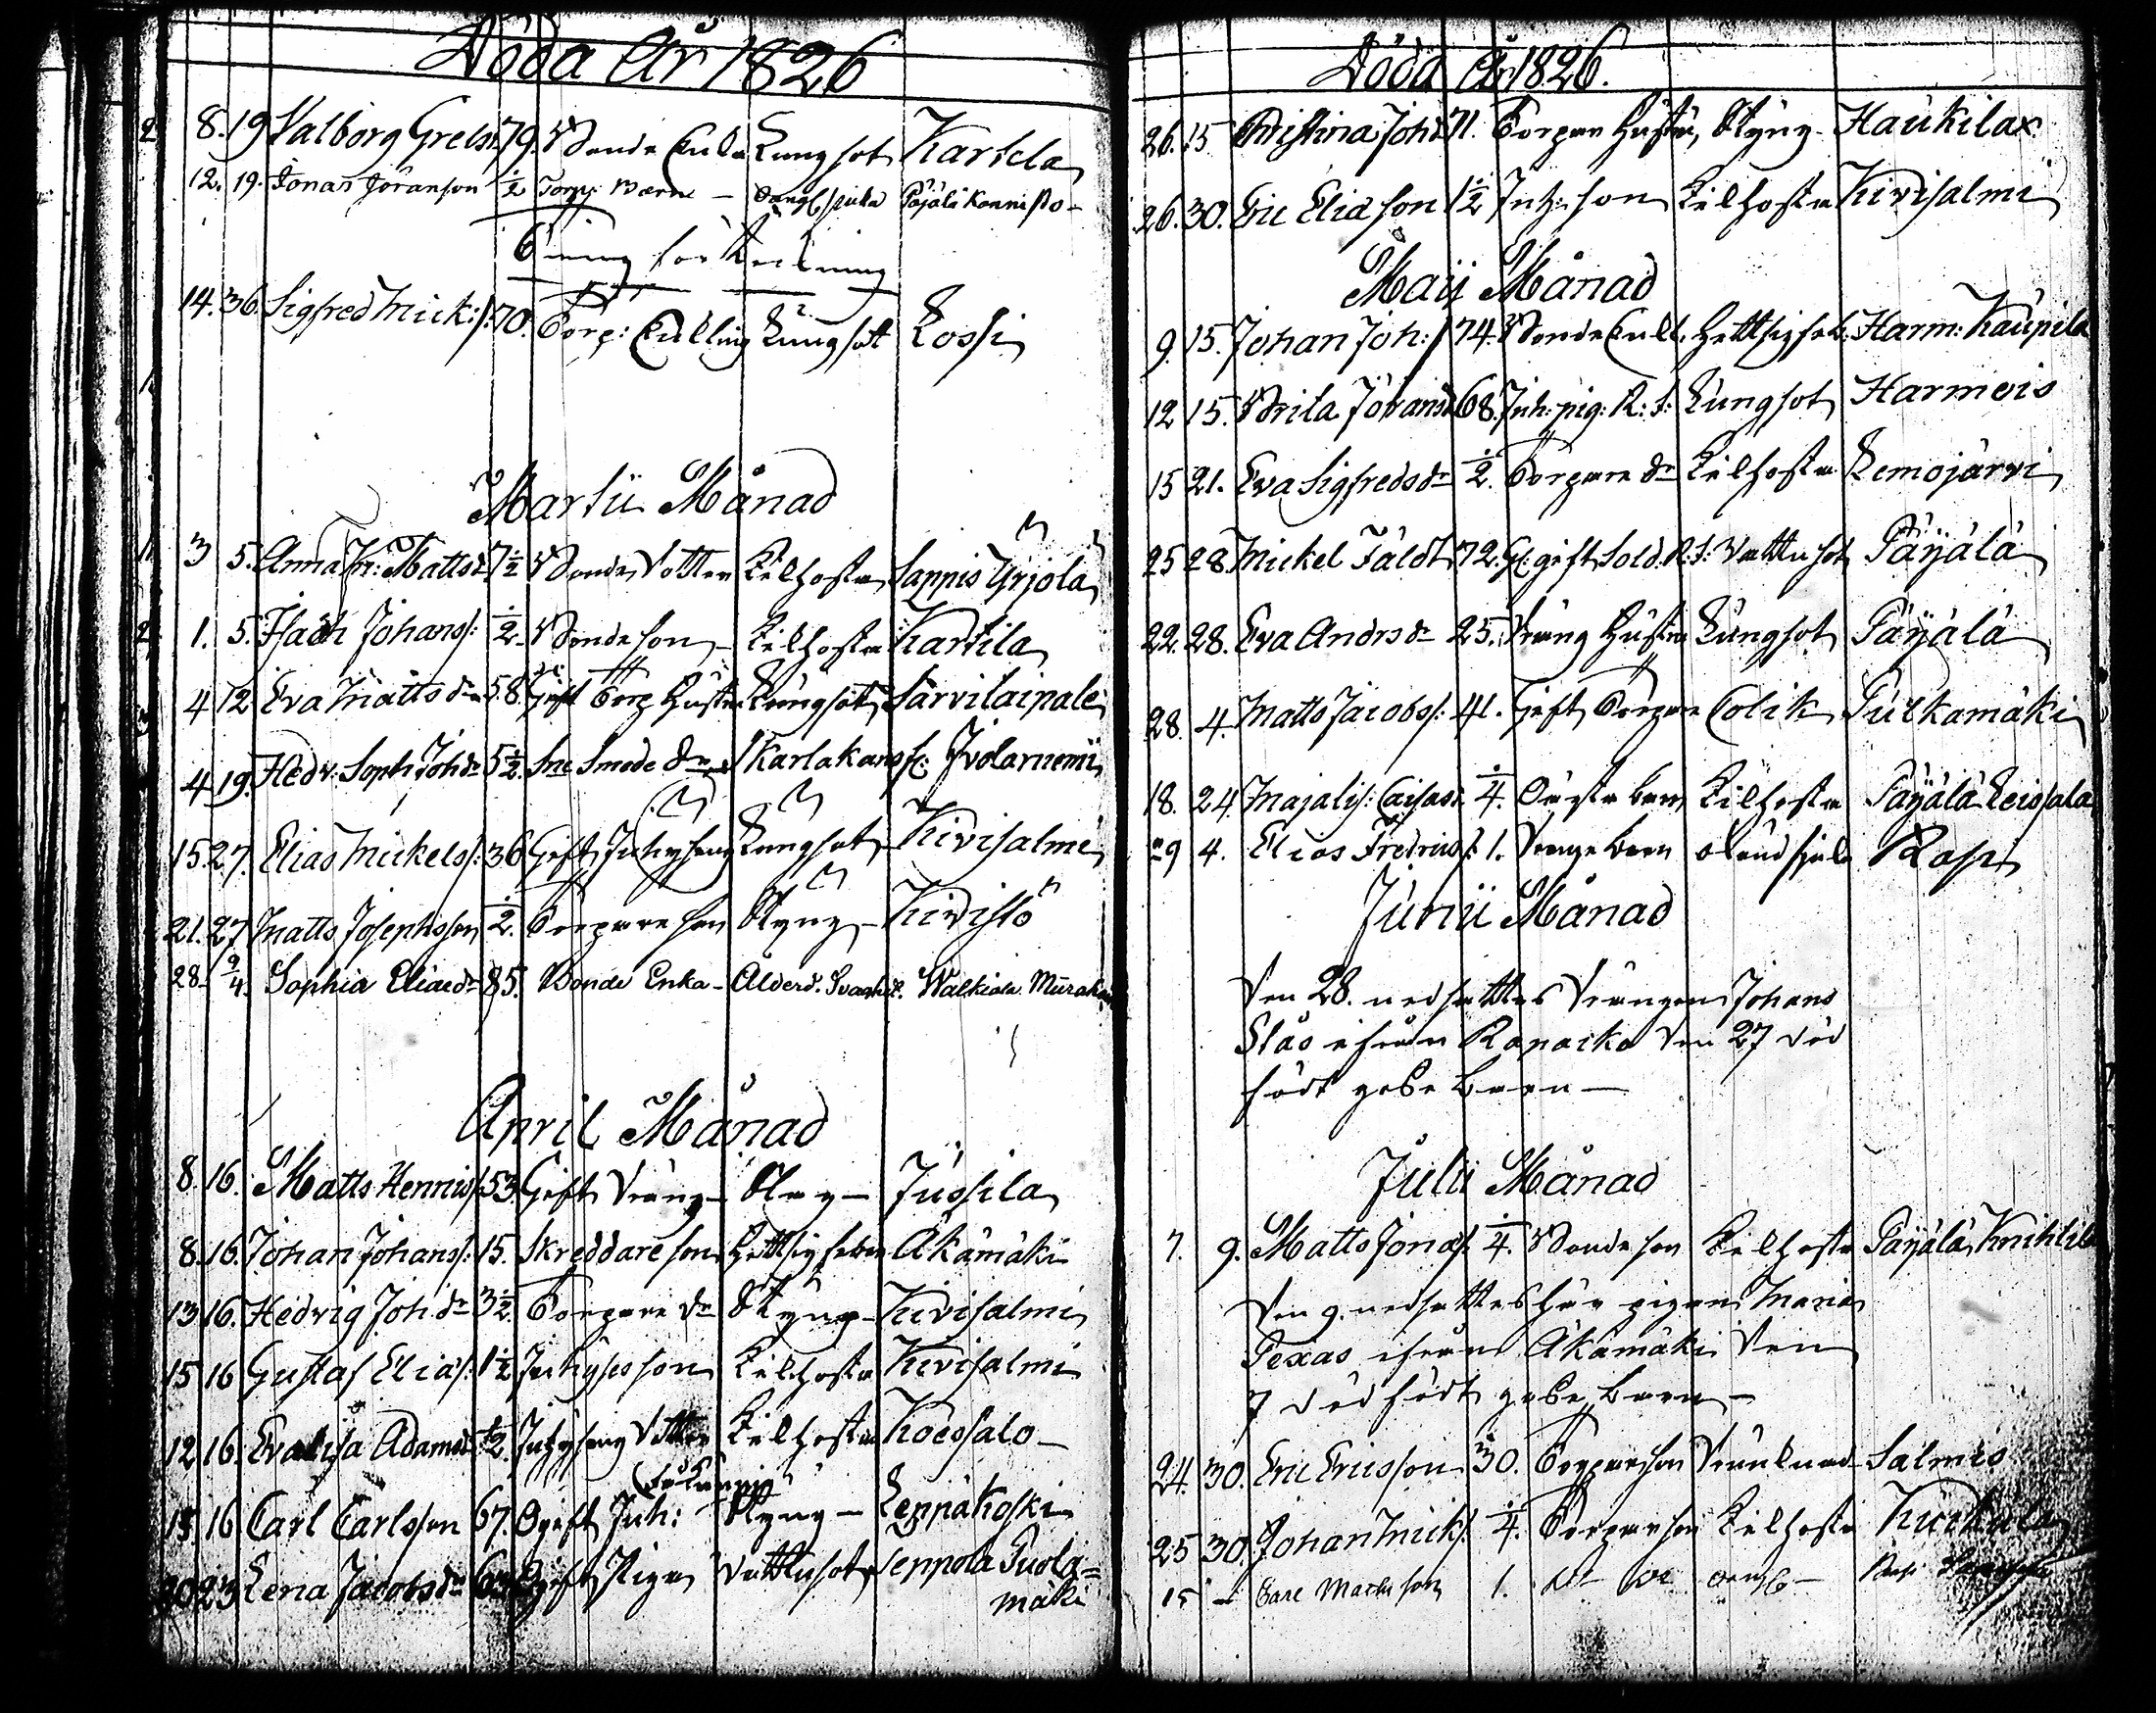 Döda År 1826
8. 19 Valborg Grels: 79. Bonde Enka Lungsot Kartela
12. 19. Jonas Jöranson ½ Torp: Barn — Pajälä Kannisto —
14. 36. Sigfred Mick: s: 70. Torp: Lungsot Lossi
Martii Månad
3 5. Anna Kr: Matts d: 7½ Bonde Dotter Kikhosta Sappis Yrjola
1. 5. Isach Johans s: ½ Bonde son — Kikhosta Kartila
4 12 Eva Matts dr 58. Gift Torp Hustru Lungsot Sarvilaipale
4 19. Hedv: Soph Joh dr 5½ Smede dr Skarlakansf: Ivolaniemi
15 27. Elias Mickels s: 36 Gift Inhyseng Lungsot Kivisalmi
21. 27 Matts Josephsson ½. Torpare son Styng — Kivistö
28. 2/4. Sophia Eliæ dr 85. Bonde Enka — Ålderd. Svaghet. Walkiala
April Månad
8. 16. Matts Hennis s: 53 Gift Dräng — Slag — Jussila
8. 16. Johan Johans s: 15. Skreddare son Hettsigfeber Äkämäki
13 16. Hedvig Joh dr 3½. Torpare dr Styng — Kivisalmi
15 16 Gustaf Elias s: 1½ Inhyses son Kikhosta Kivisalmi
12 16. Evalisa Adams dr ½. Inhyseng Dotter Kikhosta
15 16 Carl Carlsson 67. Ogift Inh: Styng — Leppäkoski
20 23 Lena Jacobs dr 63 Ogift Piga Vattusot Seppola Puola=
mäki
Döda År 1826.
26. 15 Christina Joh d: 71. Torpare Hustru, Styng — Haukilax
26. 30. Eric Eliason 1½ Inh: son Kikhosta Kivisalmi
Maij Månad
9. 15. Johan Joh: s 74. Bonde Hettsigfeb: Harm: Kaupila
12 15. Brita Jörans d 68. Inh: pig: Lungsot Harmois
15 21. Eva Sigfreds dr ½. Torpare dr Kikhosta Lemojärvi
25 28. Mickel Fäldt 72. Gl: gift Sold. Vattusot Päijälä
22. 28. Eva Andrs dr 25. Dräng Hustru Lungsot Päijälä
28. 4. Matts Jacobs s: 41. Gift Torpare Colik Purkamäki
18. 24. Majalis: Caisas d: ¼. Oäkta barn Kikhosta Päijälä Leissala
29 4. Elias Fredrics s: 1. Drenge barn Rasi
Junii Månad
Den 28. nedsattes Drängen Johans
ifrån Rapacko den 27 död
född gosse barn —
Julii Månad
7. 9. Matts Jonæ s: ¼. Bonde son Kikhosta Päijälä Knihtilä
Den 9. nedsattes här pigan Maria
Pexas ifrån Äkämäki den
7 död född gosse barn —
24. 30. Eric Ericsson 30. Torpareson Drunknad Salmis
25 30. Johan Mick s: ¼. Torpare son Kikhosta
15 — Carl 1.